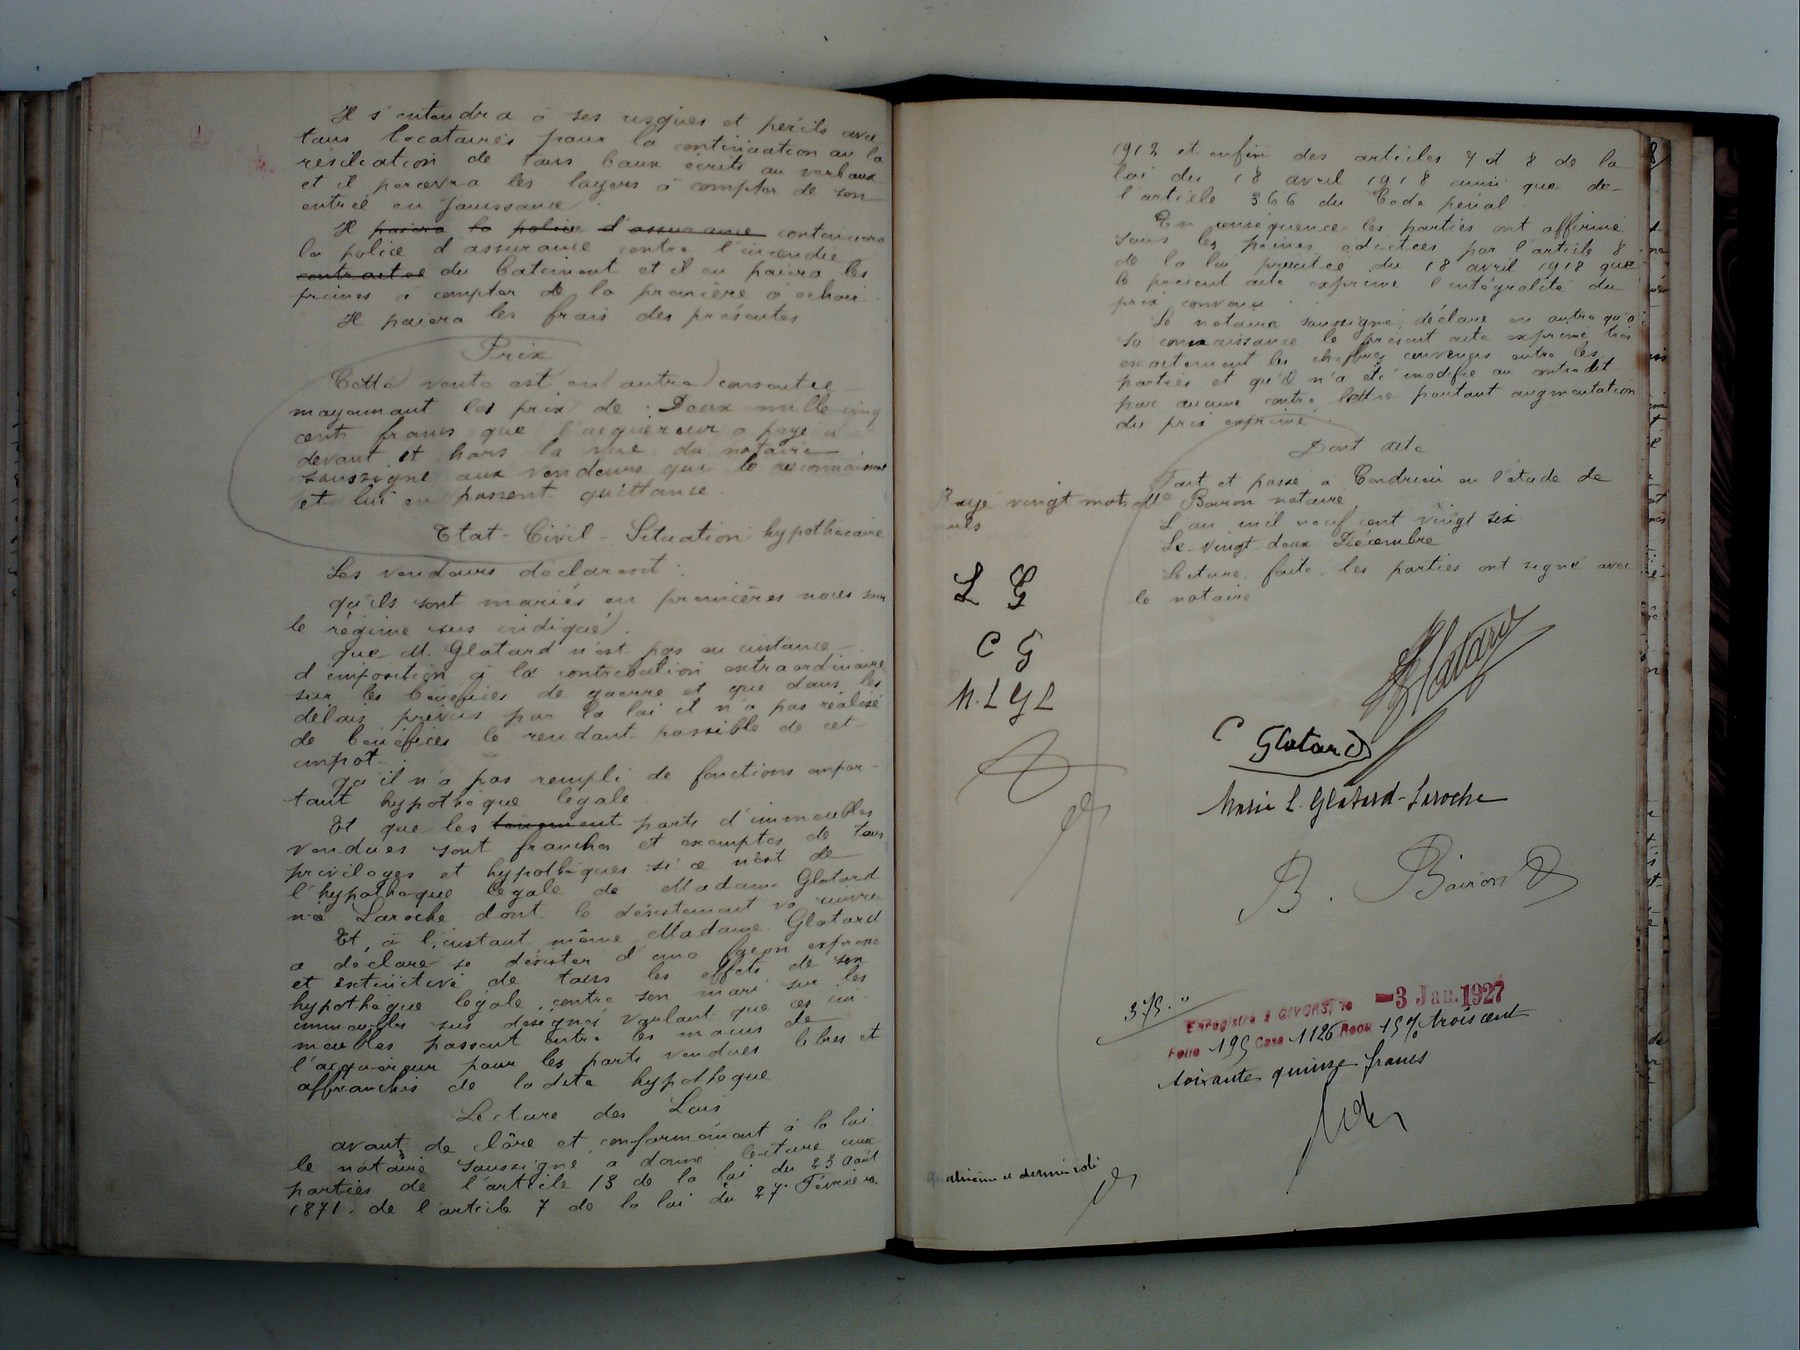 Il s'entendra à ses risques et périls avec
tous locataires pour la continuation ou la
résiliation de tous baux écrits ou verbaux
et il percevra les loyers à compter de son
entrée en jouissance.
Il paiera la police d'assurance continuera
la police d'assurance contre l'incendie
contractée du batiment et il en paiera les
primes à compter de la première à échoir.
Il paiera les frais des présentes
Prix
Cette vente est en outre consentie
moyennant le prix de : Deux mille cinq
cents francs que l'acquéreur a payé
devant et hors la vue du notaire
soussigné aux vendeurs qui le reconnaissent
et lui en passent quittance.
Etat-Civil - Situation hypothécaire
Les vendeurs déclarent :
qu'ils sont mariés en premières noces sous
le régime sus indiqué.
que M. Glatard n'est pas en instance
d'imposition à la contribution extraordinaire
sur les bénéfices de guerre et que dans les
délais prévus par la loi il n'a pas réalisé
de bénéfices le rendant passible de cet
impôt.
qu'il n'a pas rempli de fonctions empor-
tant hypothèque légale
Et que les tenement parts d'immeubles
vendues sont franches et exemptes de tous
privilèges et hypothèques si ce n'est de
l'hypothèque légale de Madame Glatard
née Laroche dont le désistement va suivre
Et, à l'instant même Madame Glatard
a déclaré se désister d'une façon expresse
et extinctive de tous les effets de son
hypothèque légale contre son mari sur les
immeubles sus désignés voulant que ces im-
meubles passent entre les mains de
l'acquéreur pour les parts vendues libres et
affranchis de ladite hypothèque
Lecture des Lois
avant de clôre et conformément à la loi
le notaire soussigné a donné lecture aux
parties de l'article 13 de la loi du 23 Août
1871. de l'article 7 de la loi du 27 Février
1912 et enfin des articles 7 et 8 de la
loi du 18 avril 1918 ainsi que de
l'article 366 du Code pénal.
En conséquence les parties ont affirmé
sous les peines édictées par l'article 8
de la loi précitée du 18 avril 1918 que
le présent acte exprime l'intégralité du
prix convenu.
Le notaire soussigné déclare en outre qu'à
sa connaissance le présent acte exprime très
exactement les chiffres convenus entre les
parties et qu'il n'a été modifié ou contredit
par aucune contre lettre portant augmentation
du prix exprimé
Dont acte
Fait et passé à Condrieu en l'étude de
Me Bairon notaire
L'an mil neuf cent vingt six
Le vingt deux Décembre
Lecture faite, les parties ont signé avec
le notaire
Rayé vingt mots
nuls
L G
C G
M. L G L
Glatard
C Glatard
Marie L. Glatard-Laroche
B. Bairon
375."
Enregistré à GIVORS, le -3 Jan. 1927
Folio 195 Case 1126 Reçu 15% trois cent
soixante quinze francs